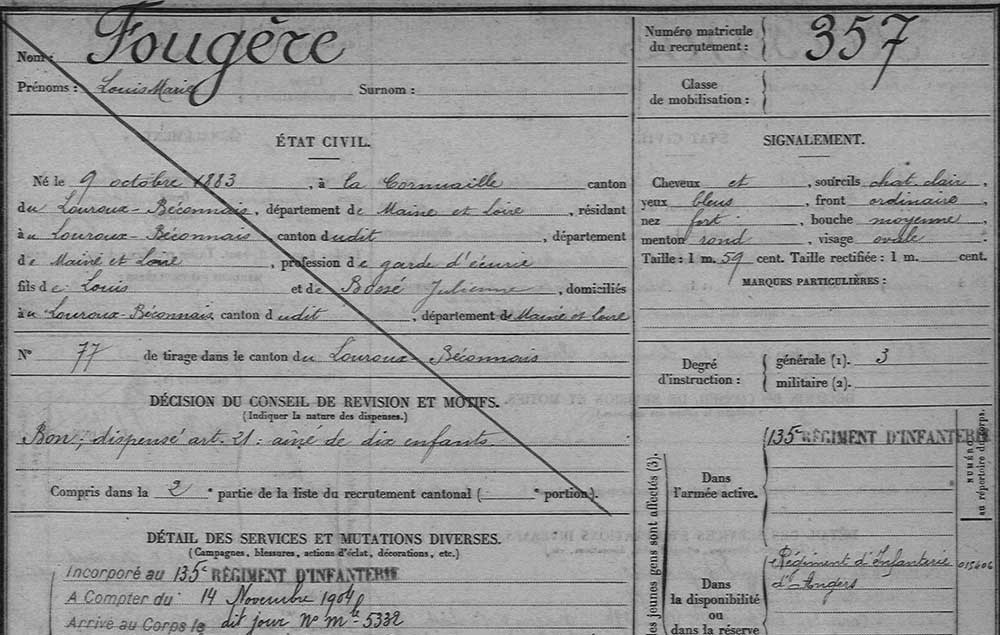 Nom: Fougère
Prénoms : Louis Marie Surnom :
ÉTAT CIVIL.
Né le 9 octobre 1883, à la Cornuaille canton
du Louroux-Béconnais, département de Maine et Loire, résidant
à u Louroux-Béconnais canton dudit, département
de Maine et Loire, profession de garde d'écurie
fils de : Louis et de Bossé Julienne, domiciliés
à u Louroux-Béconnais canton dudit, département de Maine et Loire
N° 77 de tirage dans le canton du Louroux-Béconnais
DÉCISION DU CONSEIL DE REVISION ET MOTIFS.
(Indiquer la nature des dispenses.)
Bon ; dispensé art. 21 : aîné de dix enfants
Compris dans la 2e partie de la liste du recrutement cantonal ( e portion).
DÉTAIL DES SERVICES ET MUTATIONS DIVERSES.
(Campagnes, blessures, actions d'éclat, décorations, etc.)
Incorporé au 135e RÉGIMENT D'INFANTERIE
A Compter du 14 Novembre 1904
Arrivé au Corps le dit jour No mle 5332
Numéro matricule
du recrutement : 357
Classe
de mobilisation :
SIGNALEMENT.
Cheveux et, sourcils chat. clair,
yeux bleus, front ordinaire,
nez fort, bouche moyenne,
menton rond, visage ovale.
Taille : 1 m. 59 cent. Taille rectifiée : 1 m. cent.
MARQUES PARTICULIÈRES :
Degré
d'instruction :
générale (1). 3
militaire (2).
les jeunes gens sont affectés (3).
Dans
l'armée active.
135e RÉGIMENT D'INFANTERIE
NUMÉRO
au répertoire du corps.
Dans
la disponibilité
ou
dans la réserve
Régiment d'Infanterie
d'Angers
015606